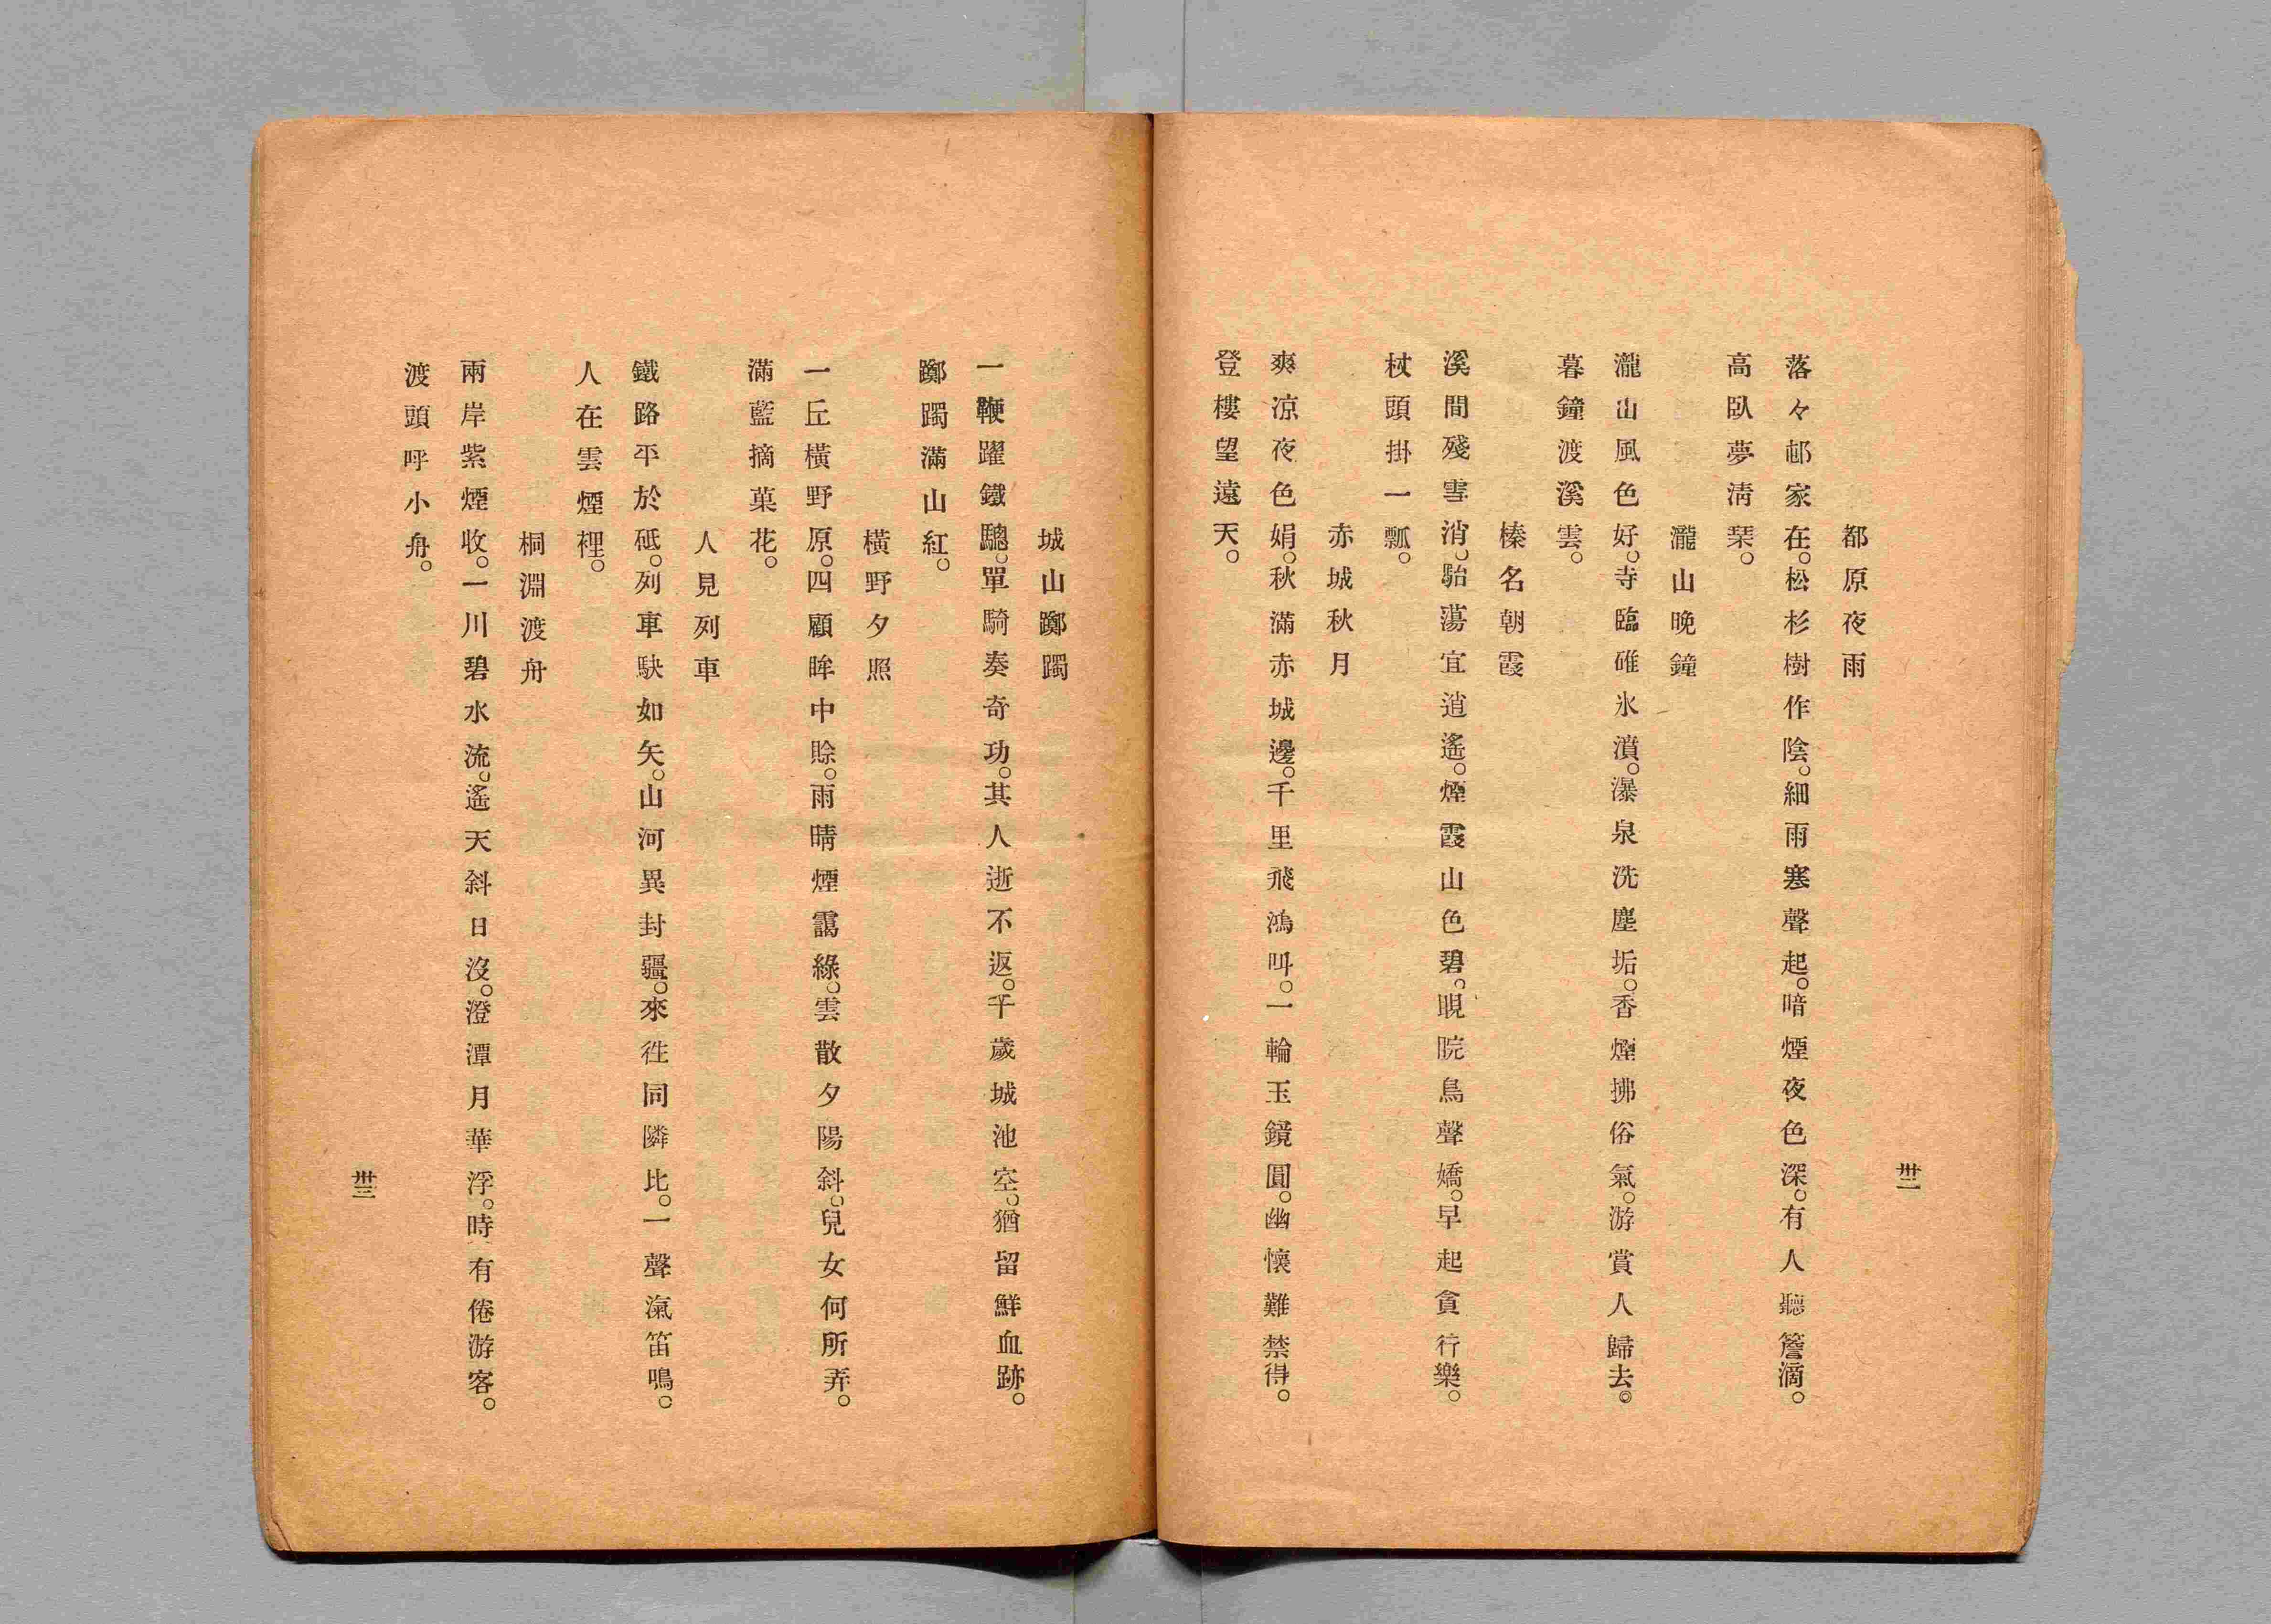 都原夜雨
落々邨家在。松杉樹作陰。細雨寒聲起。暗煙夜色深。有人聽簷滴。
高臥夢淸琹。
瀧山晩鐘
瀧山風色好。寺臨碓氷濆。瀑泉洗塵垢。香煙拂俗氣。游賞人歸去。
暮鐘渡溪雲。
榛名朝霞
溪間殘雪消。駘蕩宜逍遙。煙霞山色碧。睍睆鳥聲嬌。早起貪行樂。
杖頭掛一瓢。
赤城秋月
爽涼夜色娟。秋滿赤城邊。千里飛鴻叫。一輪玉鏡圓。幽懷難禁得。
登樓望遠天。
卅二
城山躑躅
一鞭躍鐵驄。單騎奏奇功。其人逝不返。千歲城池空。猶留鮮血跡。
躑躅滿山紅。
橫野夕照
一丘橫野原。四顧眸中賒。雨晴煙靄綠。雲散夕陽斜。兒女何所弄。
滿藍摘菓花。
人見列車
鐵路平於砥。列車駃如矢。山河異封疆。來徃同隣比。一聲滊笛鳴。
人在雲煙裡。
桐淵渡舟
兩岸紫煙收。一川碧水流。遙天斜日沒。澄潭月華浮。時有倦游客。
渡頭呼小舟。
卅三